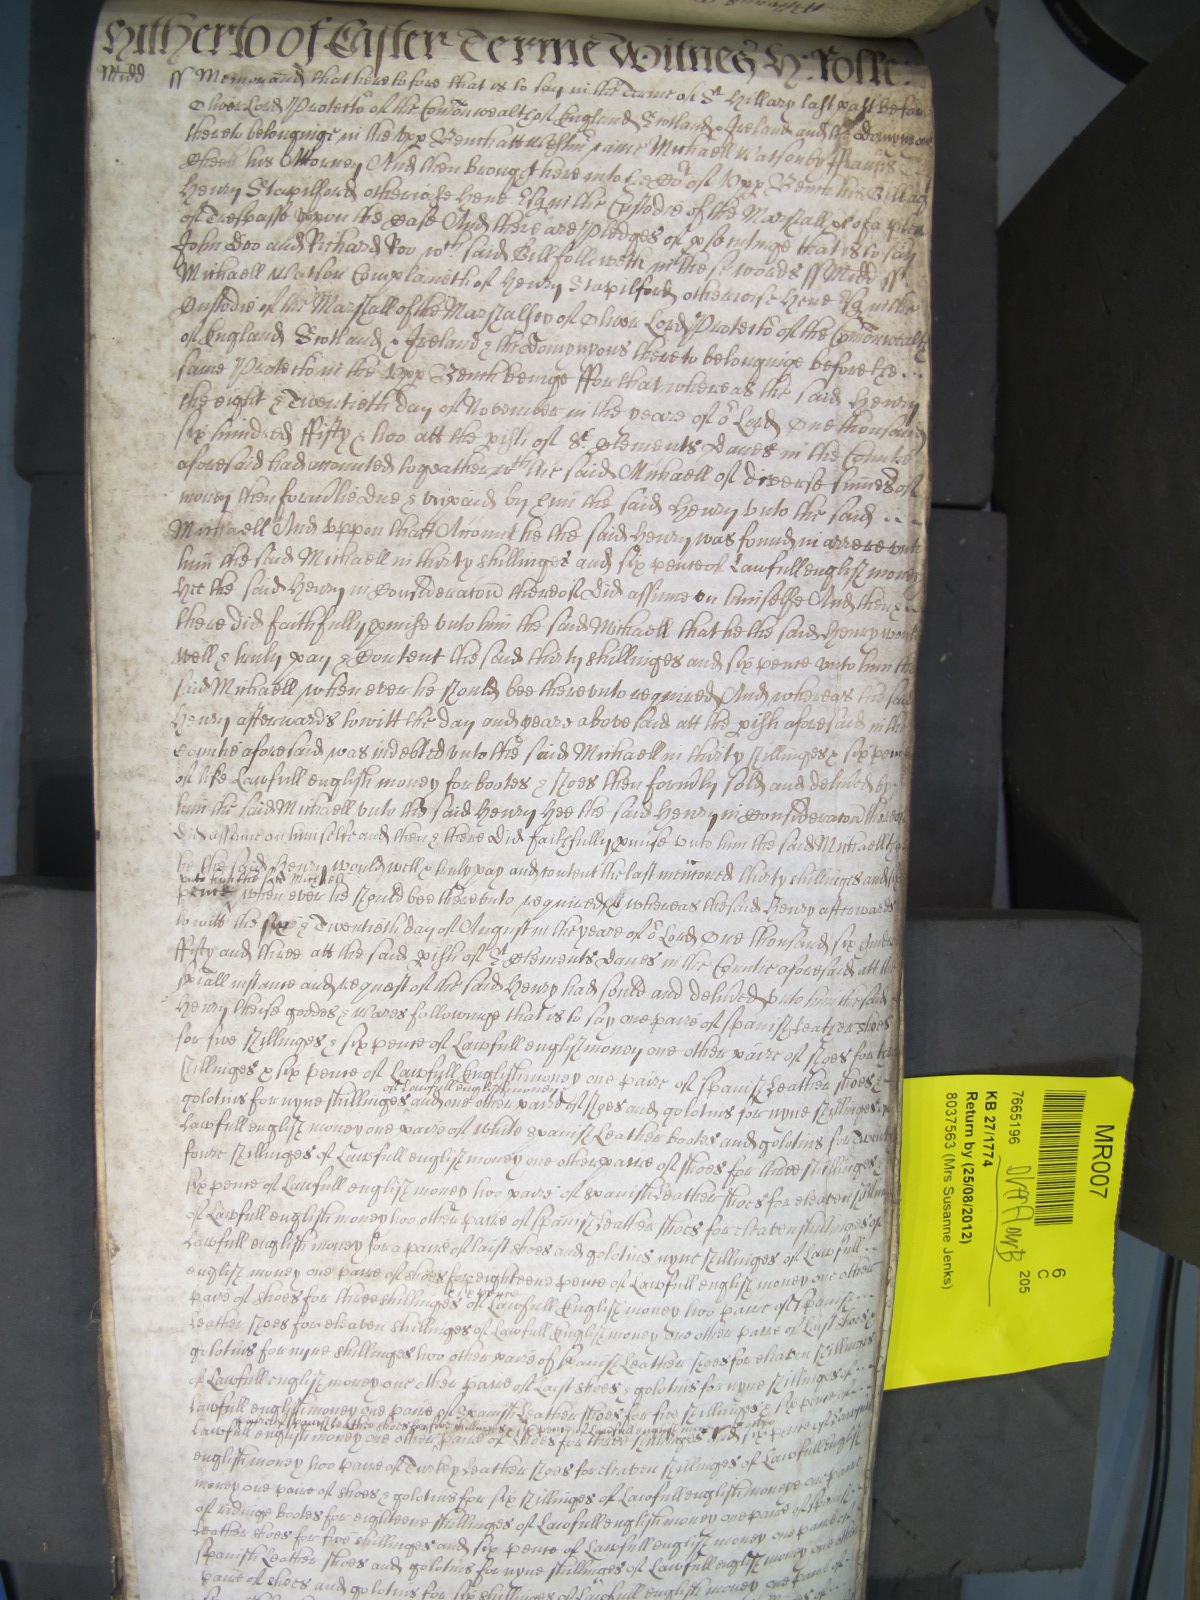 Hitherto of Easter Terme Witnes H: Rolle:
Midd ss Memorand that heretofore that is to say in the Terme of St Hillary last past before
Oliver Lord Protector of the Comonwealth of England Scotland & Ireland and the Dominions
thereto belonginge in the Upp Bench att Westm came Michaell Watson by Frauncis
his Attorney And then brought here into the Court of Upp Bench his Bill agt
Henry Stapilford otherwise Hene Esq in the Custodie of the Marshall &c of a plea
of Trespasse uppon the Case And there are Pledges of prosecutinge that is to say
John Doo and Richard Roo wch said Bill followeth in these words ss Midd ss
Michaell Watson Complaineth of Henry Stapilford otherwise Hene Esq in the
Custodie of the Marshall of the Marshalsey of Oliver Lord Protector of the Comonwealth
of England Scotland & Ireland & the Dominyons thereto belonginge before the
same Protector in the Upp Bench beinge ffor that whereas the said Henry
the eight & Twentieth day of November in the yeare of or Lord One thousand
six hundred ffifty & two att the pish of St Clements Danes in the Countie
aforesaid had accounted togeather wth the said Michaell of diverse summes of
money then formerlie due & unpaid by him the said Henry unto the said
Michaell And uppon thatt Account he the said Henry was found in arrere unto
him the said Michaell in thirty shillinges and six pence of Lawfull english money
Hee the said Henry in Consideracon thereof did assume on himselfe And then &
there did faithfully pmise unto him the said Michaell that he the said Henry would
well & truly pay & Content the said thirty shillinges and six pence unto him the
said Michaell when ever he should bee thereunto required And whereas the said
Henry afterwards to witt the day and yeare abovesaid att the pish aforesaid in the
Countie aforesaid was indebted unto the said Michaell in thirty shillinges & six pence
of like Lawfull english money for bootes & shoes then formerly sold and delivered by
him the said Michaell unto the said Henry Hee the said Henry in Consideracon thereof
did assume on himselfe and then & there did faithfully pmise unto him the said Michaell that
he the said Henry would well & truly pay and content the last menconed thirty shillinges and six
unto him the said Michaell
pence when ever he should bee thereunto required & whereas the said Henry afterwards
to witt the six & Twentieth day of August in the yeare of or Lord One thousand six hundred
ffifty and three att the said pish of St Clements Danes in the Countie aforesaid att the
spiall instance and request of the said Henry had sould and delivered unto him the said
Henry theise goodes & Wares followinge that is to say one paire of spanish leather shoes
for five shillinges & six pence of Lawfull english money one other paire of shoes for
shillinges & six pence of Lawfull English money one paire of spanish leather shoes &
of Lawfull english money
goloshis for nyne shillinges and one other paire of shoes and goloshis for nyne shillinges of
Lawfull english money one paire of white spanish leather bootes and goloshis for Twenty
foure shillinges of Lawfull english money one other paire of shoes for three shillinges &
six pence of Lawfull english money two paire of spanish leather shoes for eleaven shillinges
of Lawfull english money two other paire of spanish leather shoes for eleaven shillinges of
Lawfull english money for a paire of laist shoes and goloshis nyne shillinges of Lawfull
english money one paire of shoes for eighteene pence of Lawfull english money one other
six pence
paire of shoes for three shillinges of Lawfull English money two paire of spanish
leather shoes for eleaven shillinges of Lawfull English money one other paire of Laist shoes &
goloshis for nyne shillinges two other paire of spanish leather shoes for eleaven shillinges
of Lawfull english money one other paire of Laist shoes & goloshis for nyne shillinges of
Lawfull english money one paire of spanish leather shoes for five shillinges & six pence of
paire of spanish leather shoes for five shillinges & six pence of Lawfull english money
Lawfull english money one other paire of shoes for three shillinges and six pence of Lawfull
english money two paire of Turkey leather shoes for eleaven shillinges of Lawfull english
money one paire of shoes & goloshis for six shillinges of Lawfull english money one paire
of ridinge bootes for eighteene shillinges of Lawfull english money one paire of spanish
leather shoes for five shillinges and six pence of Lawfull english money one paire of
spanish leather shoes and goloshis for nyne shillinges of Lawfull english money one other
paire of shoes and goloshis for six shillinges of Lawfull english money one paire of
MR007
6
C
205
7665196
KB 27/1774
Return by (25/08/2012)
8037563 (Mrs Susanne Jenks)